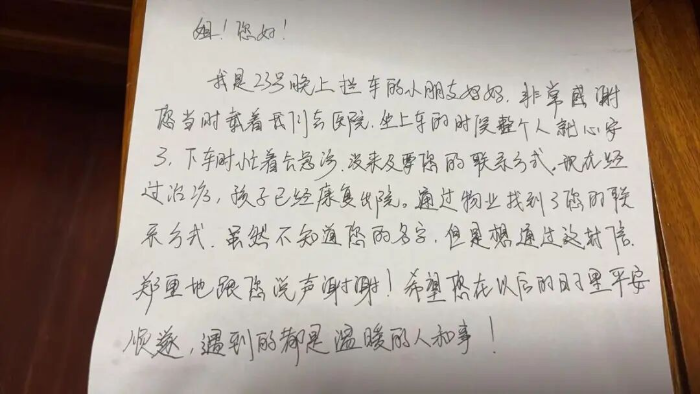 姐！您好！
我是23号晚上拦车的小朋友妈妈，非常感谢
您当时载着我们去医院，坐上车的时候整个人就心安
了，下车时忙着去急诊，没来及要您的联系方式，现在经
过治疗，孩子已经康复出院。通过物业找到了您的联
系方式，虽然不知道您的名字，但是想通过这封信
郑重地跟您说声谢谢！希望您在以后的日子里平安
顺遂，遇到的都是温暖的人和事！